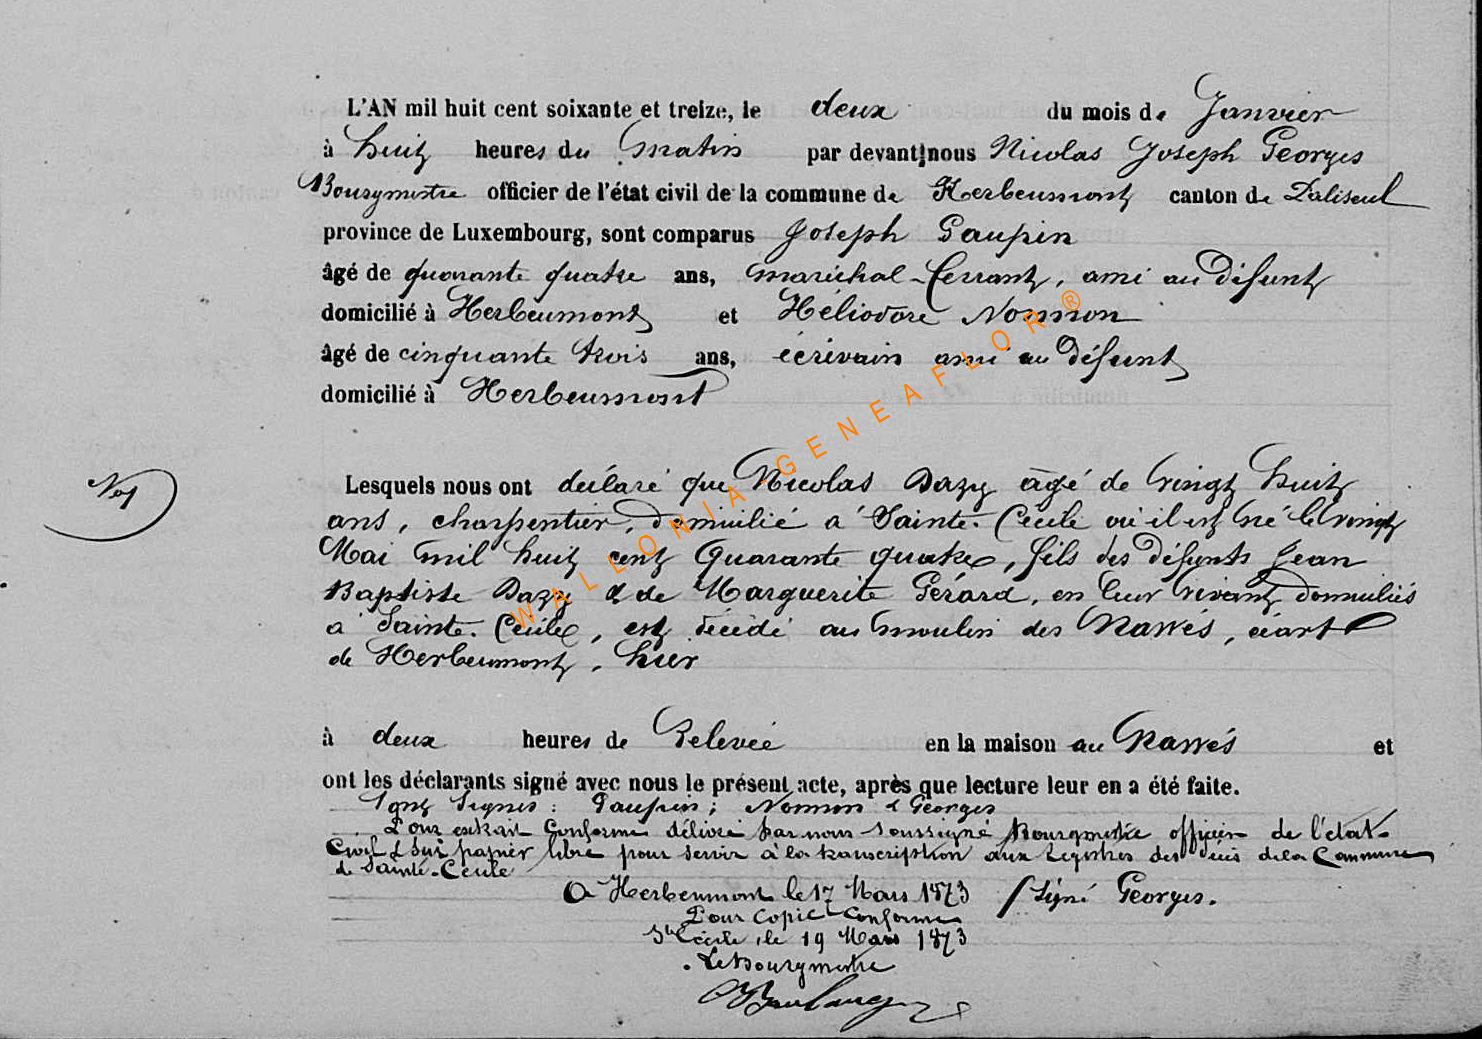 L'AN mil huit cent soixante et treize, le deux du mois de Janvier
à huit heures du matin par devant nous Nicolas Joseph Georges
Bourgmestre officier de l'état civil de la commune de Herbeumont canton de Paliseul
province de Luxembourg, sont comparus Joseph Paupin
âgé de quarante quatre ans, maréchal-ferrant, ami au défunt
domicilié à Herbeumont et Héliodore Nonnon
âgé de cinquante trois ans, écrivain ami au défunt
domicilié à Herbeumont
Lesquels nous ont déclaré que Nicolas Dazy âgé de vingt huit
ans, charpentier, domicilié à Sainte-Cécile où il est né le vingt
Mai mil huit cent quarante quatre, fils des défunts Jean
Baptiste Dazy & de Marguerite Gérard, en leur vivant domiciliés
à Sainte-Cécile, est décédé au moulin des Nawés, écart
de Herbeumont, hier
à deux heures de Relevée en la maison au Nawés et
ont les déclarants signé avec nous le présent acte, après que lecture leur en a été faite.
Sont Signés : Paupin; Nonnon & Georges
Pour extrait Conforme délivré par nous soussigné Bourgmestre officier de l'état
Civil & sur papier libre pour servir à la transcription aux registres des décès de la Commune
de Sainte-Cécile
A Herbeumont le 17 Mars 1873 / Signé Georges.
Pour Copie Conforme
Ste Cécile, le 19 Mars 1873
Le Bourgmestre
WALLONIA-GENEAFLOR®